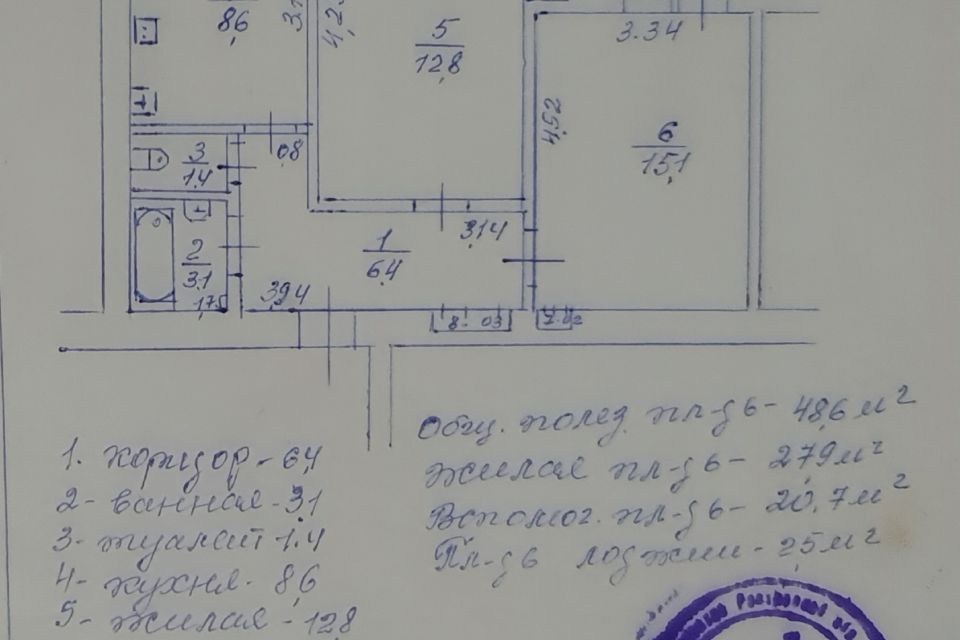 8,6
4,2
5
12,8
3.34
4,52
6
15,1
0,8
3
1.4
3,14
1
6,4
2
3.1
1,75
3,94
1. коридор - 6,4
2 - ванная - 3,1
3 - туалет 1.4
4 - кухня - 8,6
5 - жилая - 12,8
Общ. полез. пл-дь - 48,6 м²
жилая пл-дь - 27,9 м²
Вспомог. пл-дь - 20,7 м²
Пл-дь лоджии - 2,5 м²